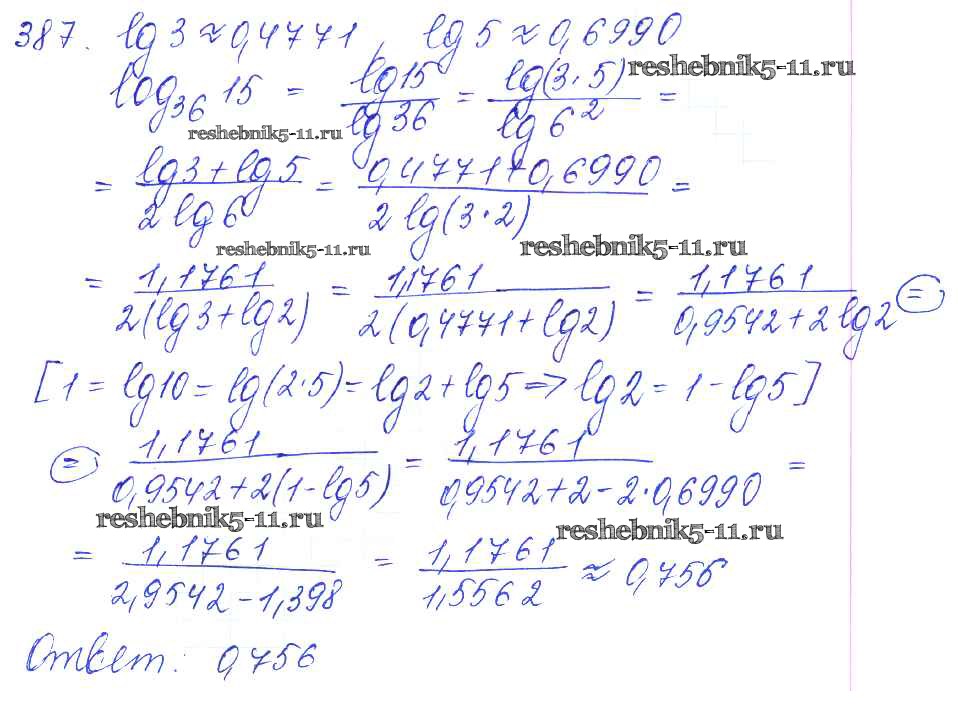 387. lg 3 ≈ 0,4771, lg 5 ≈ 0,6990
reshebnik5-11.ru
log₃₆ 15 = lg 15 / lg 36 = lg(3·5) / lg 6² =
reshebnik5-11.ru
= (lg 3 + lg 5) / (2 lg 6) = (0,4771 + 0,6990) / (2 lg(3·2)) =
reshebnik5-11.ru reshebnik5-11.ru
= 1,1761 / (2(lg 3 + lg 2)) = 1,1761 / (2(0,4771 + lg 2)) = 1,1761 / (0,9542 + 2 lg 2) =
[1 = lg 10 = lg(2·5) = lg 2 + lg 5 => lg 2 = 1 - lg 5]
= 1,1761 / (0,9542 + 2(1 - lg 5)) = 1,1761 / (0,9542 + 2 - 2·0,6990) =
reshebnik5-11.ru reshebnik5-11.ru
= 1,1761 / (2,9542 - 1,398) = 1,1761 / 1,5562 ≈ 0,756
Ответ: 0,756